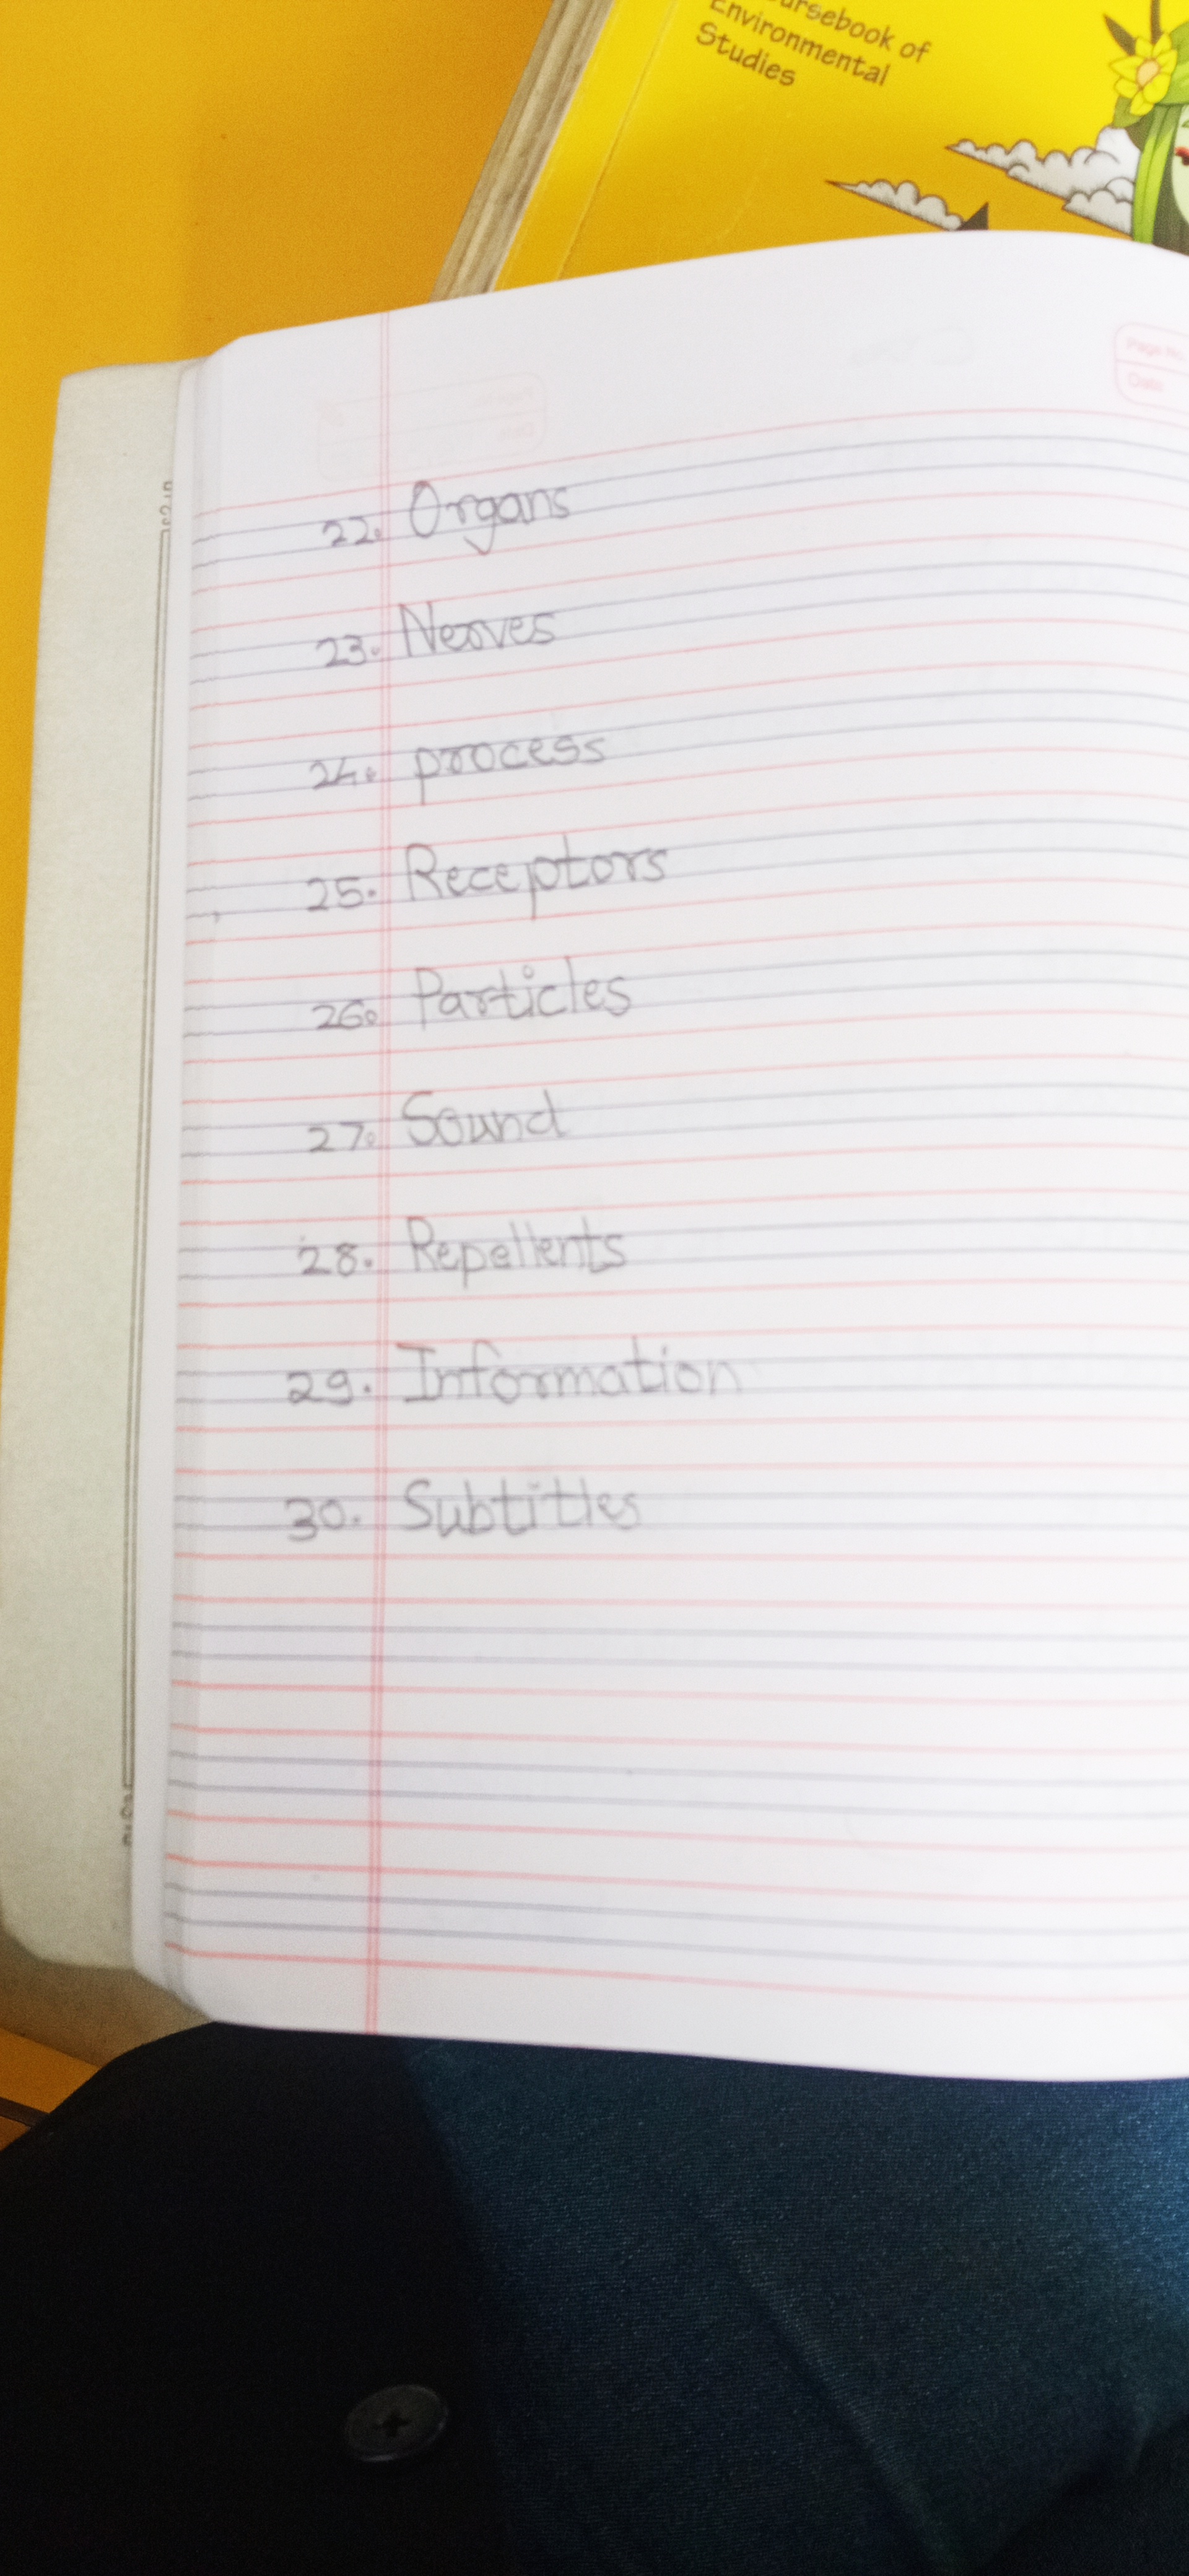 ursebook of
Environmental
Studies
Page No.
Date
22. Organs
23. Nerves
24. process
25. Receptors
26. Particles
27. Sound
28. Repellents
29. Information
30. Subtitles